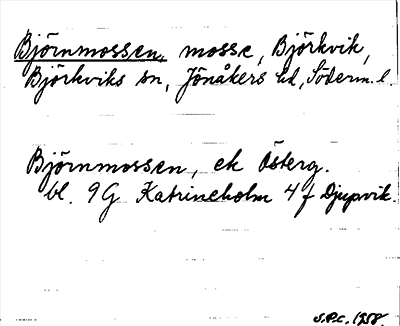 Björnmossen, mosse, Björkvik,
Björkviks sn, Jönåkers hd, Söderm. l.
Björnmossen, ek Österg.
bl. 9G Katrineholm 4 f Djupvik.
S.P.C. 1958.